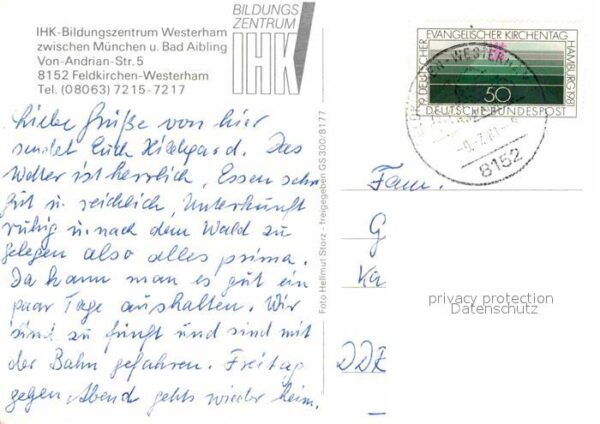 IHK-Bildungszentrum Westerham
zwischen München u. Bad Aibling
Von-Andrian-Str. 5
8152 Feldkirchen-Westerham
Tel. (08063) 7215-7217
BILDUNGS
ZENTRUM
IHK
Liebe Grüße von hier
sendet Euch Hildegard. Das
Wetter ist herrlich, Essen sehr
gut u. reichlich, Unterkunft
ruhig u. nach dem Wald zu
gelegen also alles prima.
Da kann man es gut ein
paar Tage aushalten. Wir
sind zu fünft und sind mit
der Bahn gefahren. Freitag
gegen Abend gehts wieder heim.
Foto Hellmut Storz - freigegeben GS 300/8177
19. DEUTSCHER EVANGELISCHER KIRCHENTAG HAMBURG 1981
50
DEUTSCHE BUNDESPOST
-WESTERHAM
8152
Fam.
G
DDR
privacy protection
Datenschutz